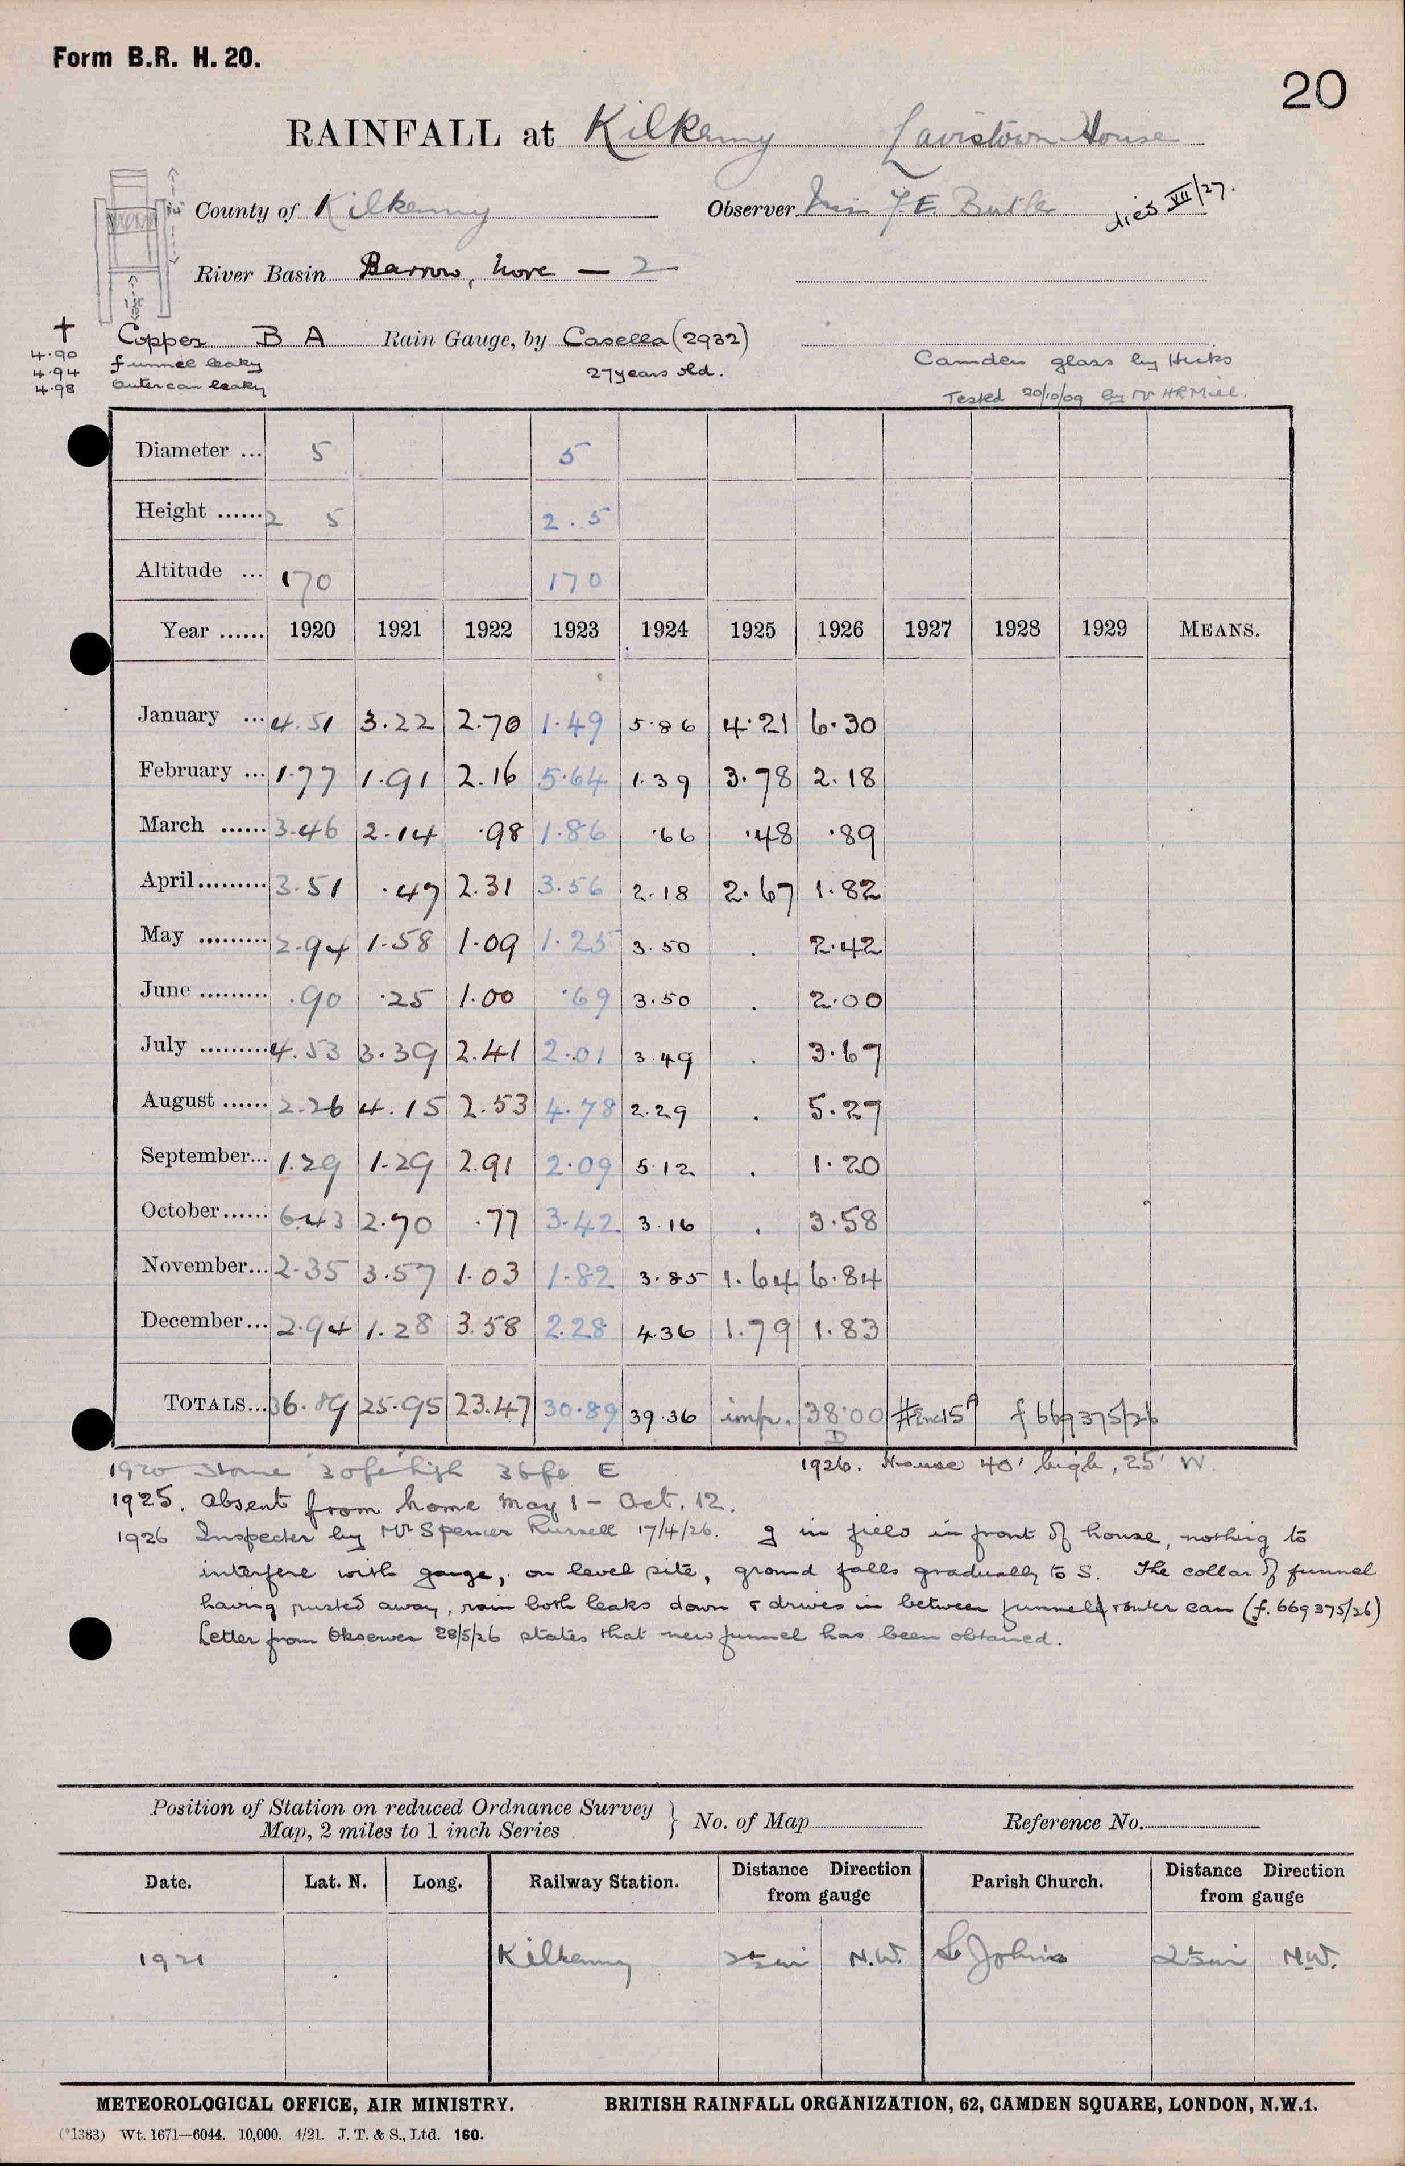 Form B.R. H. 20.
20
RAINFALL at Kilkenny Lavistown House
County of Kilkenny Observer Miss F. E. Butler died VII/27.
River Basin Barrow, Nore — 2
† Copper B A Rain Gauge, by Casella (2932)
4.90 funnel leaky 27 years old. Camden glass by Hicks
4.94 outer can leaky Tested 20/10/09 by Dr HR Mill.
4.98
Diameter ... 5 5
Height ...... 2 5 2.5
Altitude ... 170 170
Year ...... 1920 1921 1922 1923 1924 1925 1926 1927 1928 1929 MEANS.
January ... 4.51 3.22 2.70 1.49 5.86 4.21 6.30
February ... 1.77 1.91 2.16 5.64 1.39 3.78 2.18
March ...... 3.46 2.14 .98 1.86 .66 .48 .89
April......... 3.51 .47 2.31 3.56 2.18 2.67 1.82
May ......... 2.94 1.58 1.09 1.25 3.50 . 2.42
June ......... .90 .25 1.00 .69 3.50 . 2.00
July ......... 4.53 3.39 2.41 2.01 3.49 . 3.67
August ...... 2.26 4.15 2.53 4.78 2.29 . 5.27
September... 1.29 1.29 2.91 2.09 5.12 . 1.20
October...... 6.43 2.70 .77 3.42 3.16 . 3.58
November... 2.35 3.57 1.03 1.82 3.85 1.64 6.84
December... 2.94 1.28 3.58 2.28 4.36 1.79 1.83
TOTALS... 36.89 25.95 23.47 30.89 39.36 imp. 38.00 f 669375/26
D
1920 30 fe high 36 fe E 1926. House 40' high, 25' W.
1925. absent from home May 1 – Oct. 12.
1926 Inspected by Mr Spencer Russell 17/4/26. g in field in front of house, nothing to
interfere with gauge, on level site, ground falls gradually to S. The collar of funnel
having rusted away, rain both leaks down & drives in between funnel & outer can (f. 669375/26)
Letter from Observer 28/5/26 states that new funnel has been obtained.
Position of Station on reduced Ordnance Survey } No. of Map Reference No.
Map, 2 miles to 1 inch Series
Date. Lat. N. Long. Railway Station. Distance Direction from gauge Parish Church. Distance Direction from gauge
1921 Kilkenny N.W. St Johns N.W.
METEOROLOGICAL OFFICE, AIR MINISTRY. BRITISH RAINFALL ORGANIZATION, 62, CAMDEN SQUARE, LONDON, N.W.1.
(*1383) Wt. 1671—6044. 10,000. 4/21. J. T. & S., Ltd. 160.